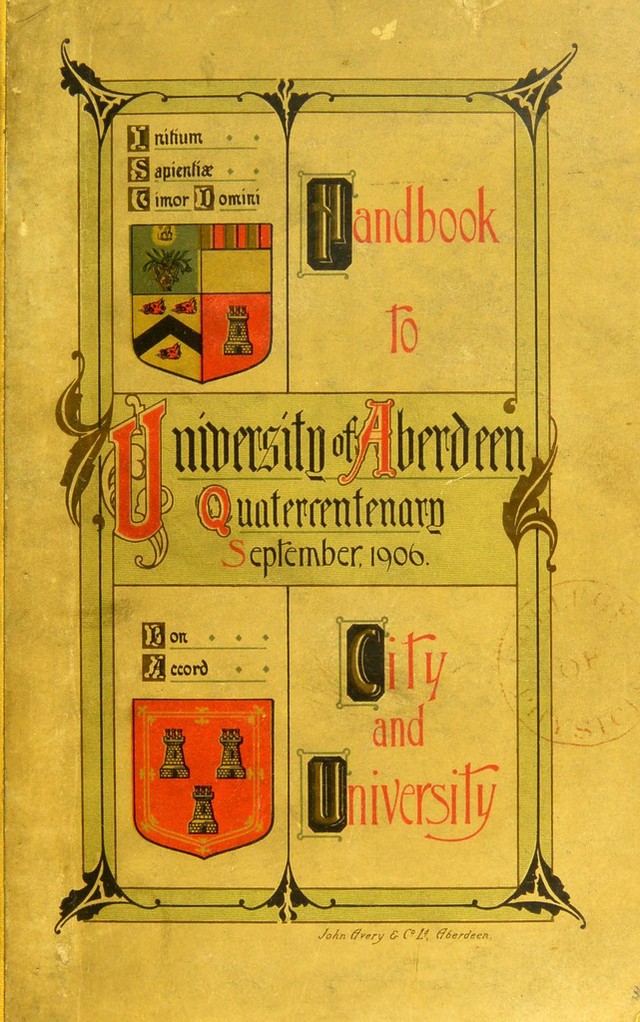 Initium
Sapientiæ
Timor Domini
Handbook
to
University of Aberdeen
Quatercentenary
September, 1906.
Bon
Accord
City
and
University
OF
John Avery & Co. Ld., Aberdeen.